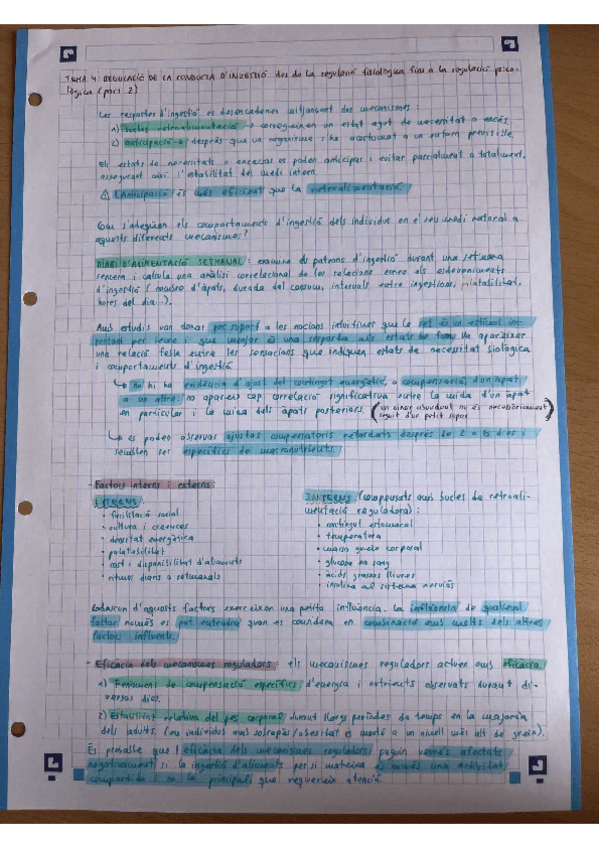 TEMA 4: REGULACIÓ DE LA CONDUCTA D'INGESTIÓ des de la regulació fisiològica fins a la regulació psico-
lògica (part 2)
Les respostes d'ingestió es desencadenen mitjançant dos mecanismes:
a) bucles retroalimentació → corregeixen un estat agut de necessitat o excés.
2) anticipació → després que un organisme s'ha acostumat a un entorn previsible.
Els estats de necessitats o excessos es poden anticipar i evitar parcialment o totalment,
assegurant així l'estabilitat del medi intern.
⚠ L'anticipació és més eficient que la retroalimentació
Com s'adeqüen els comportaments d'ingestió dels individus en el seu medi natural a
aquests diferents mecanismes?
DIARI D'ALIMENTACIÓ SETMANAL: examina els patrons d'ingestió durant una setmana
sencera i calcula una anàlisi correlacional de les relacions entre els esdeveniments
d'ingestió (nombre d'àpats, durada del consum, intervals entre ingestions, palatabilitat,
hores del dia...).
Aquests estudis van donar poc suport a les nocions intuïtives que la set és un estímul im-
portant per beure i que menjar és una resposta als estats de fam. Va aparèixer
una relació feble entre les sensacions que indiquen estats de necessitat biològica
i comportaments d'ingestió
↳ no hi ha evidència d'ajust del contingut energètic, o compensació, d'un àpat
a un altre: no apareix cap correlació significativa entre la mida d'un àpat
en particular i la mida dels àpats posteriors. (un dinar abundant no és necessàriament
seguit d'un petit sopar)
↳ es poden observar ajustos compensatoris retardats després de 2 o 3 dies i
semblen ser específics de macronutrients.
- Factors interns i externs:
EXTERNS:
• facilitació social
• cultura i creences
• densitat energètica
• palatabilitat
• cost i disponibilitat d'aliments
• ritmes diaris o setmanals
INTERNS (composats amb bucles de retroali-
mentació reguladora):
• contingut estomacal
• temperatura
• massa greix corporal
• glucosa en sang
• àcids grassos lliures
• insulina al sistema nerviós
Cadascun d'aquests factors exerceixen una petita influència. La influència de qualsevol
factor només es pot entendre quan es considera en combinació amb molts dels altres
factors influents.
- Eficàcia dels mecanismes reguladors: els mecanismes reguladors actuen amb eficàcia.
a) Fenòmens de compensació específics d'energia i nutrients observats durant di-
versos dies.
2) Estabilitat relativa del pes corporal durant llargs períodes de temps en la majoria
dels adults (en individus amb sobrepès/obesitat es manté a un nivell més alt de greix).
És probable que l'eficàcia dels mecanismes reguladors puguin veure's afectats
negativament si la ingestió d'aliments per si mateixa és només una activitat
compartida i no la principal que requereix atenció